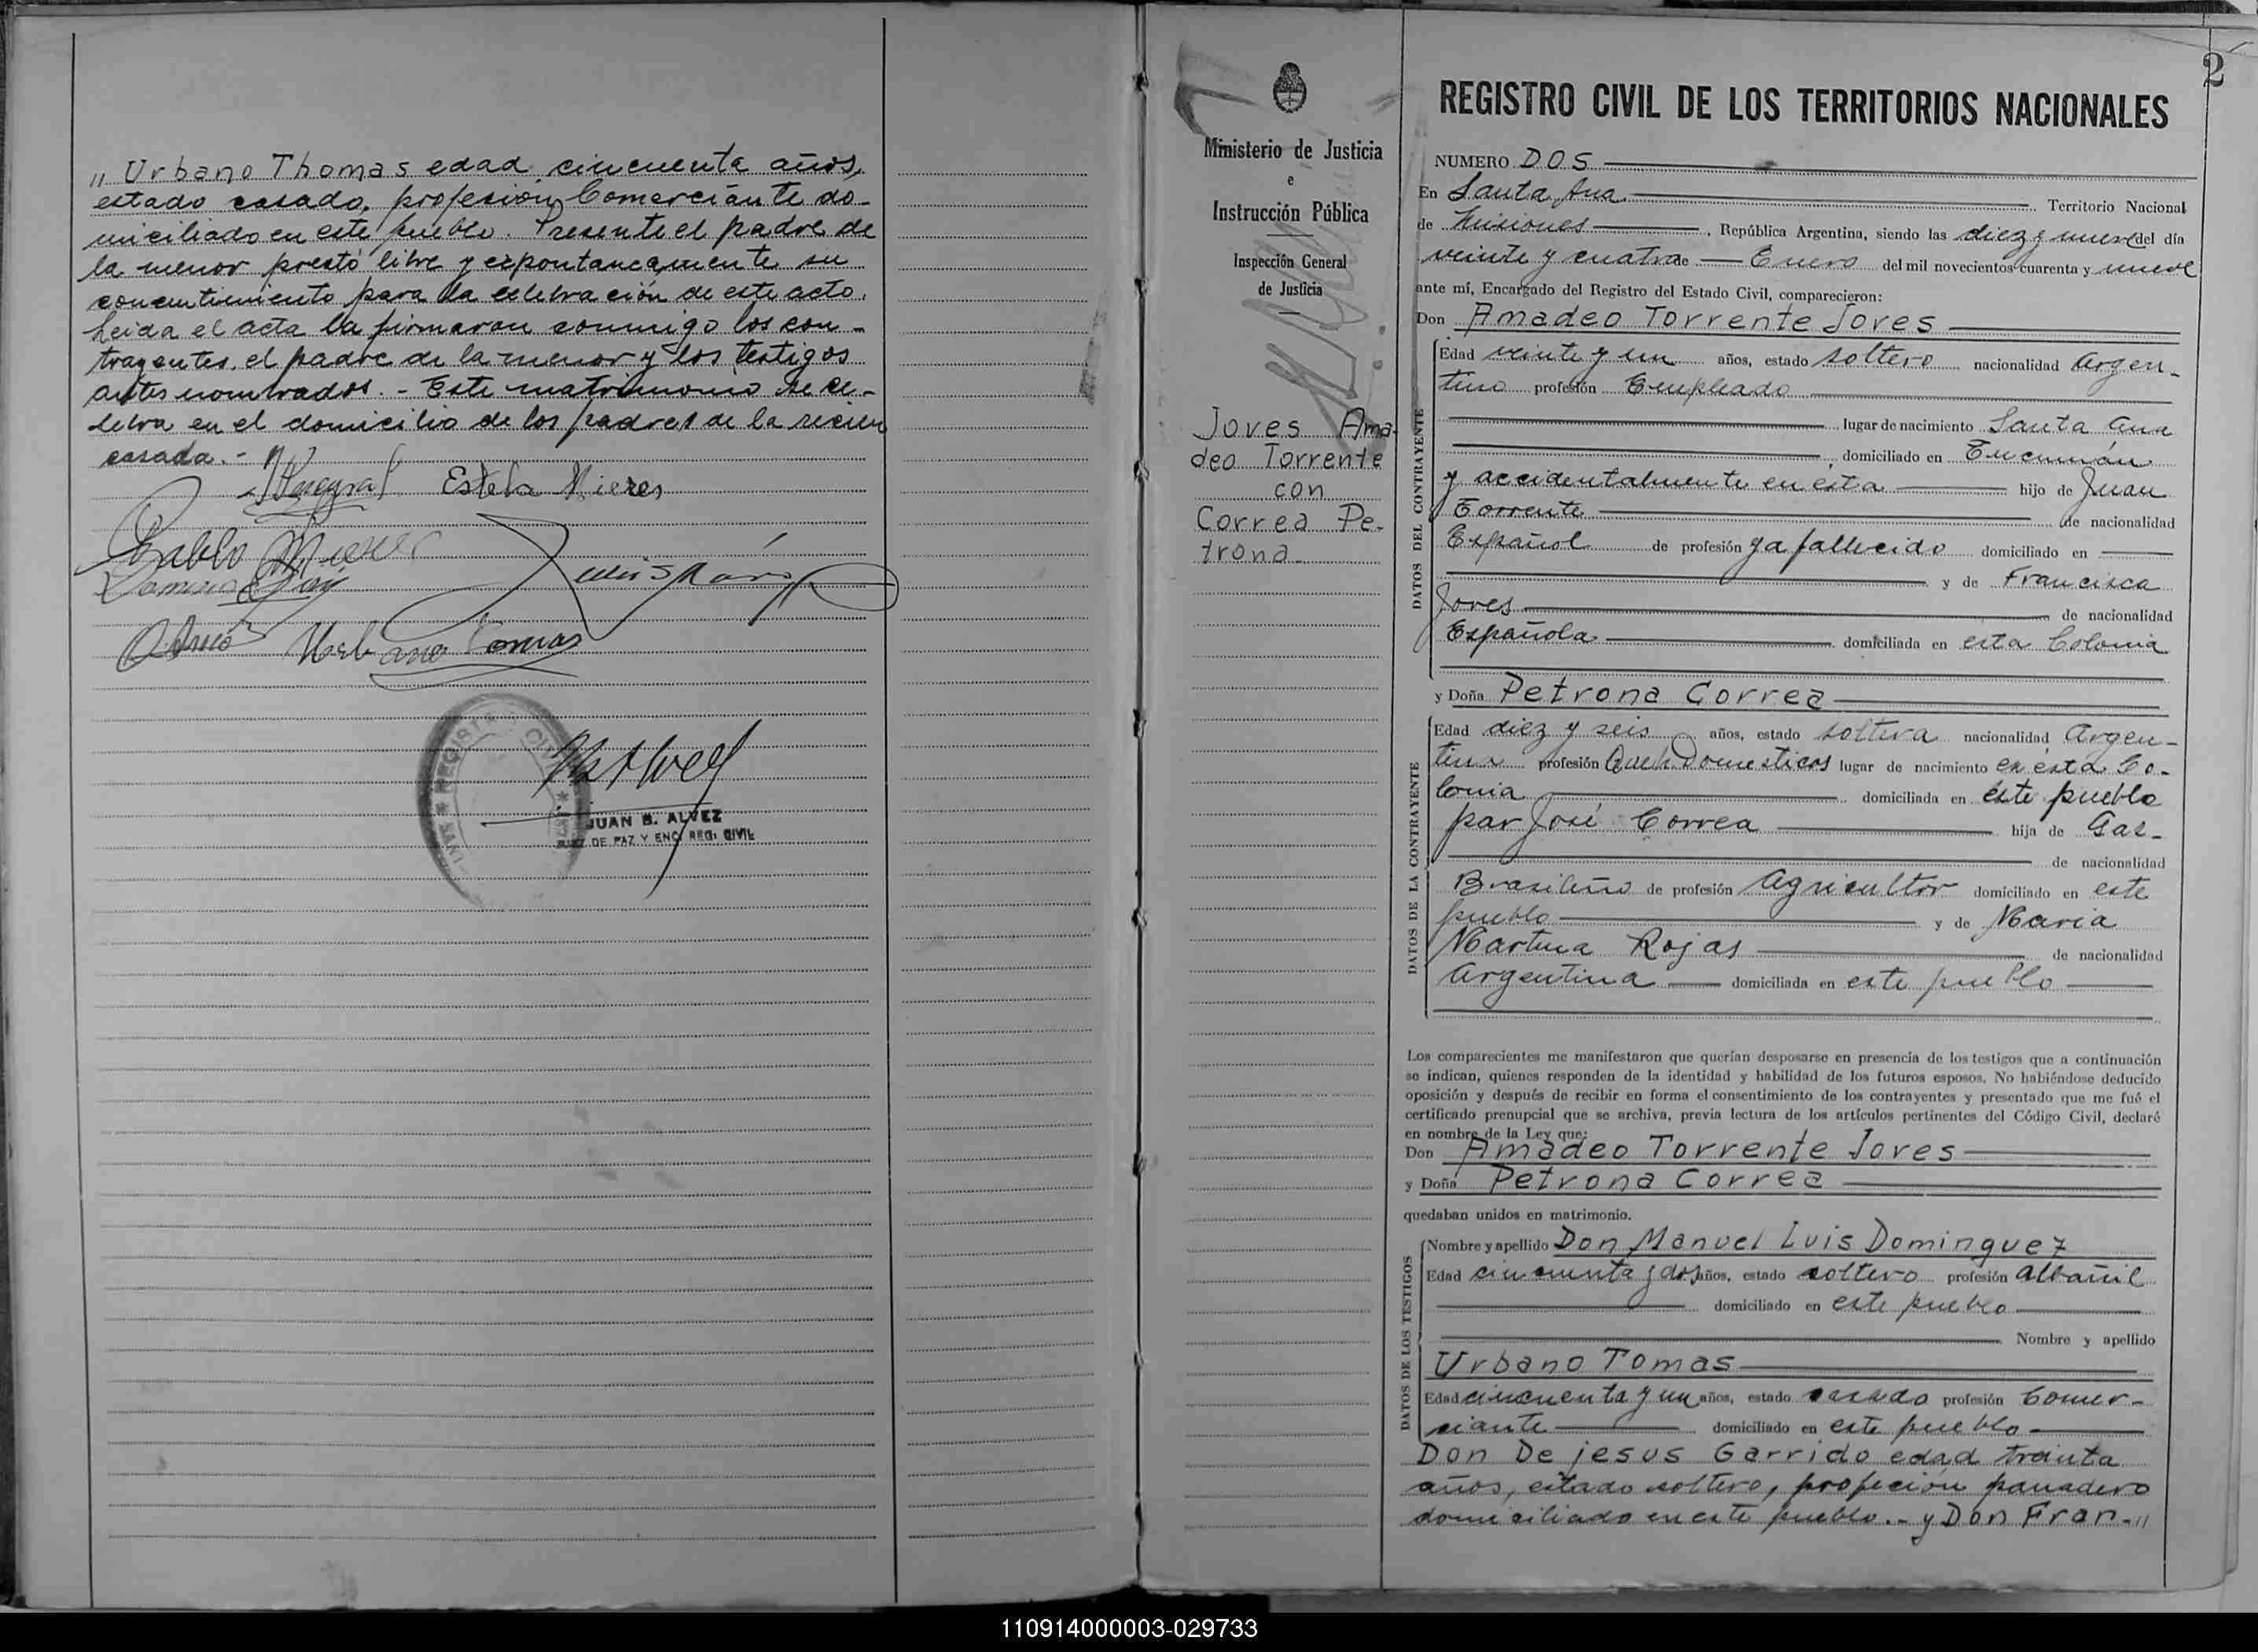 „ Urbano Thomas edad cincuenta años,
estado casado, profesion Comerciante do-
miciliado en este pueblo. Presente el padre de
la menor prestó libre y espontaneamente su
concentimiento para la celebración de este acto.
Leida el acta la firmaron conmigo los con-
trayentes, el padre de la menor y los testigos
antes nombrados. - Este matrimonio se ce-
lebra en el domicilio de los padres de la recien
casada. -
Estela Mieres
Pablo Mieres
Urbano Tomas
JUAN B. ALVEZ
JUEZ DE PAZ Y ENC. REG. CIVIL
Ministerio de Justicia
e
Instrucción Pública
Inspección General
de Justicia
Joves Ama-
deo Torrente
con
Correa Pe-
trona.
2
REGISTRO CIVIL DE LOS TERRITORIOS NACIONALES
NUMERO DOS
En Santa Ana Territorio Nacional
de Misiones, República Argentina, siendo las diez y nueve del día
veinte y cuatro de Enero del mil novecientos cuarenta y nueve
ante mí, Encargado del Registro del Estado Civil, comparecieron:
Don Amadeo Torrente Joves
DATOS DEL CONTRAYENTE
Edad veinte y un años, estado soltero nacionalidad Argen-
tino profesión Empleado
lugar de nacimiento Santa Ana
domiciliado en Tucumán
y accidentalmente en esta hijo de Juan
Torrente de nacionalidad
Español de profesión ya fallecido domiciliado en
y de Francisca
Joves de nacionalidad
Española domiciliada en esta Colonia
y Doña Petrona Correa
DATOS DE LA CONTRAYENTE
Edad diez y seis años, estado soltera nacionalidad Argen-
tina profesión Queh. Domesticos lugar de nacimiento en esta Co-
lonia domiciliada en este pueblo
par José Correa hija de Gas-
de nacionalidad
Brasileño de profesión Agricultor domiciliado en este
pueblo y de Maria
Martina Rojas de nacionalidad
Argentina domiciliada en este pueblo
Los comparecientes me manifestaron que querían desposarse en presencia de los testigos que a continuación
se indican, quienes responden de la identidad y habilidad de los futuros esposos. No habiéndose deducido
oposición y después de recibir en forma el consentimiento de los contrayentes y presentado que me fué el
certificado prenupcial que se archiva, previa lectura de los artículos pertinentes del Código Civil, declaré
en nombre de la Ley que:
Don Amadeo Torrente Joves
y Doña Petrona Correa
quedaban unidos en matrimonio.
DATOS DE LOS TESTIGOS
Nombre y apellido Don Manuel Luis Dominguez
Edad cincuenta y dos años, estado soltero profesión Albañil
domiciliado en este pueblo
Nombre y apellido
Urbano Tomas
Edad cincuenta y un años, estado casado profesión Comer-
ciante domiciliado en este pueblo
Don De jesus Garrido edad treinta
años, estado soltero, profeción panadero
domiciliado en este pueblo. - y Don Fran-„
110914000003-029733